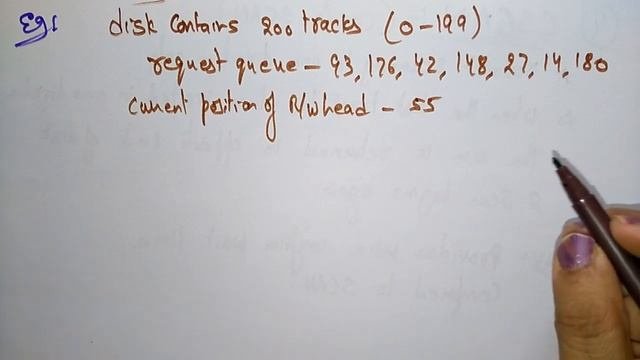 Eg:
disk contains 200 tracks (0-199)
request queue - 93, 176, 42, 148, 27, 14, 180
current position of R/w head - 55